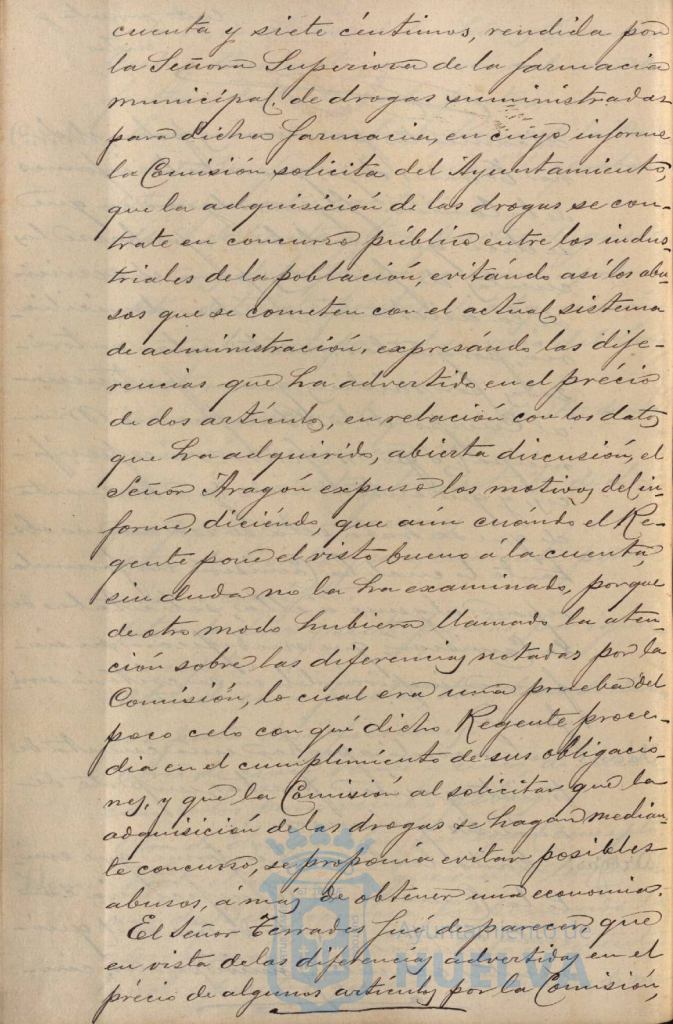 cuenta y siete céntimos, rendida por
la Señora Superiora de la farmacia
municipal, de drogas suministradas
para dicha farmacia, en cuyo informe
la Comisión solicita del Ayuntamiento,
que la adquisición de las drogas se con-
trate en concurso público entre los indus-
triales de la población, evitándo así los abu-
sos que se cometen con el actual sistema
de administración, expresándo las dife-
rencias que ha advertido en el précio
de dos artículos, en relación con los datos
que ha adquirido, abierta discusión, el
Señor Aragón expuso los motivos del in-
forme, diciéndo, que aún cuándo el Re-
gente pone el visto bueno á la cuenta,
sin duda no la ha examinado, porque
de otro modo hubiera llamado la aten-
ción sobre las diferencias notadas por la
Comisión, lo cual era una prueba del
poco celo con qué dicho Regente proce-
dia en el cumplimiento de sus obligacio-
nes, y que la Comisión al solicitar que la
adquisición de las drogas se hagan median-
te concurso, se proponía evitar posibles
abusos, á más de obtener una economia.
El Señor Terrades fué de parecer, que
en vista de las diferencias advertidas en el
précio de algunos artículos por la Comisión,
Ayuntamiento de
HUELVA